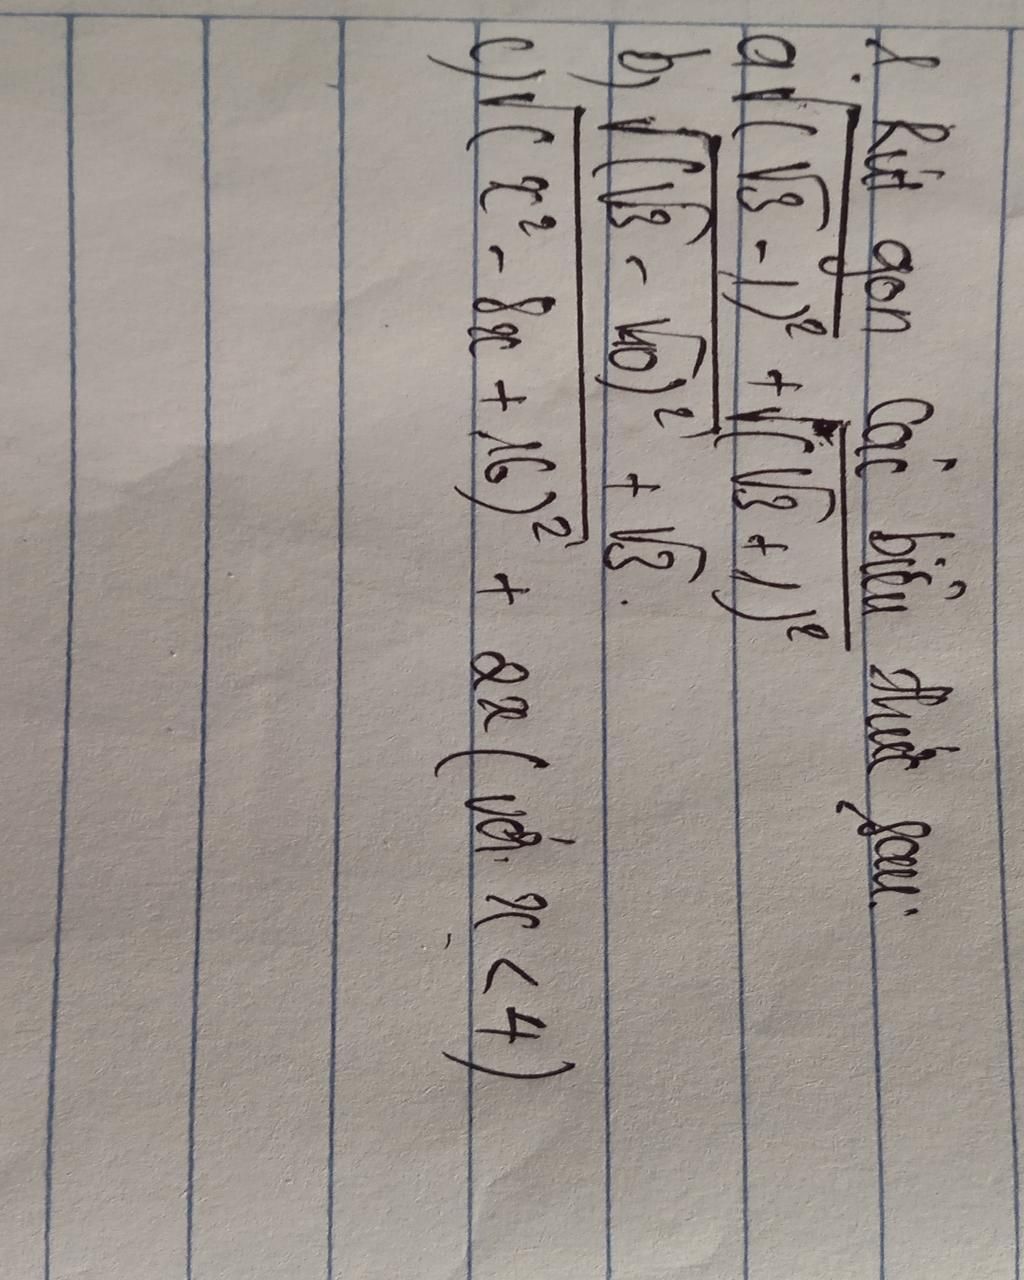 1. Rút gọn các biểu thức sau:
a √(√3 - 1)² + √(√3 + 1)²
b) √(√3 - √10)² + √3.
c) √(x² - 8x + 16)² + 2x (với x < 4)